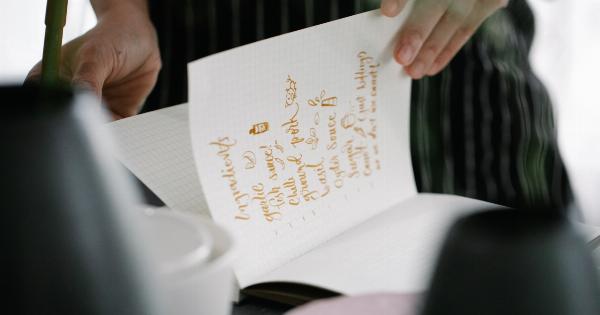 Ingredients
garlic
fish sauce
Chilli
ground pork
basil
Oyster Sauce
Sugar
Carrot